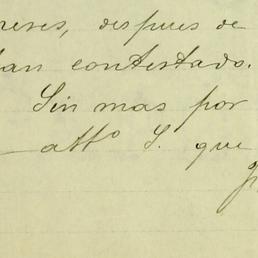 despues de
han contestado.
Sin mas por
atto S. que